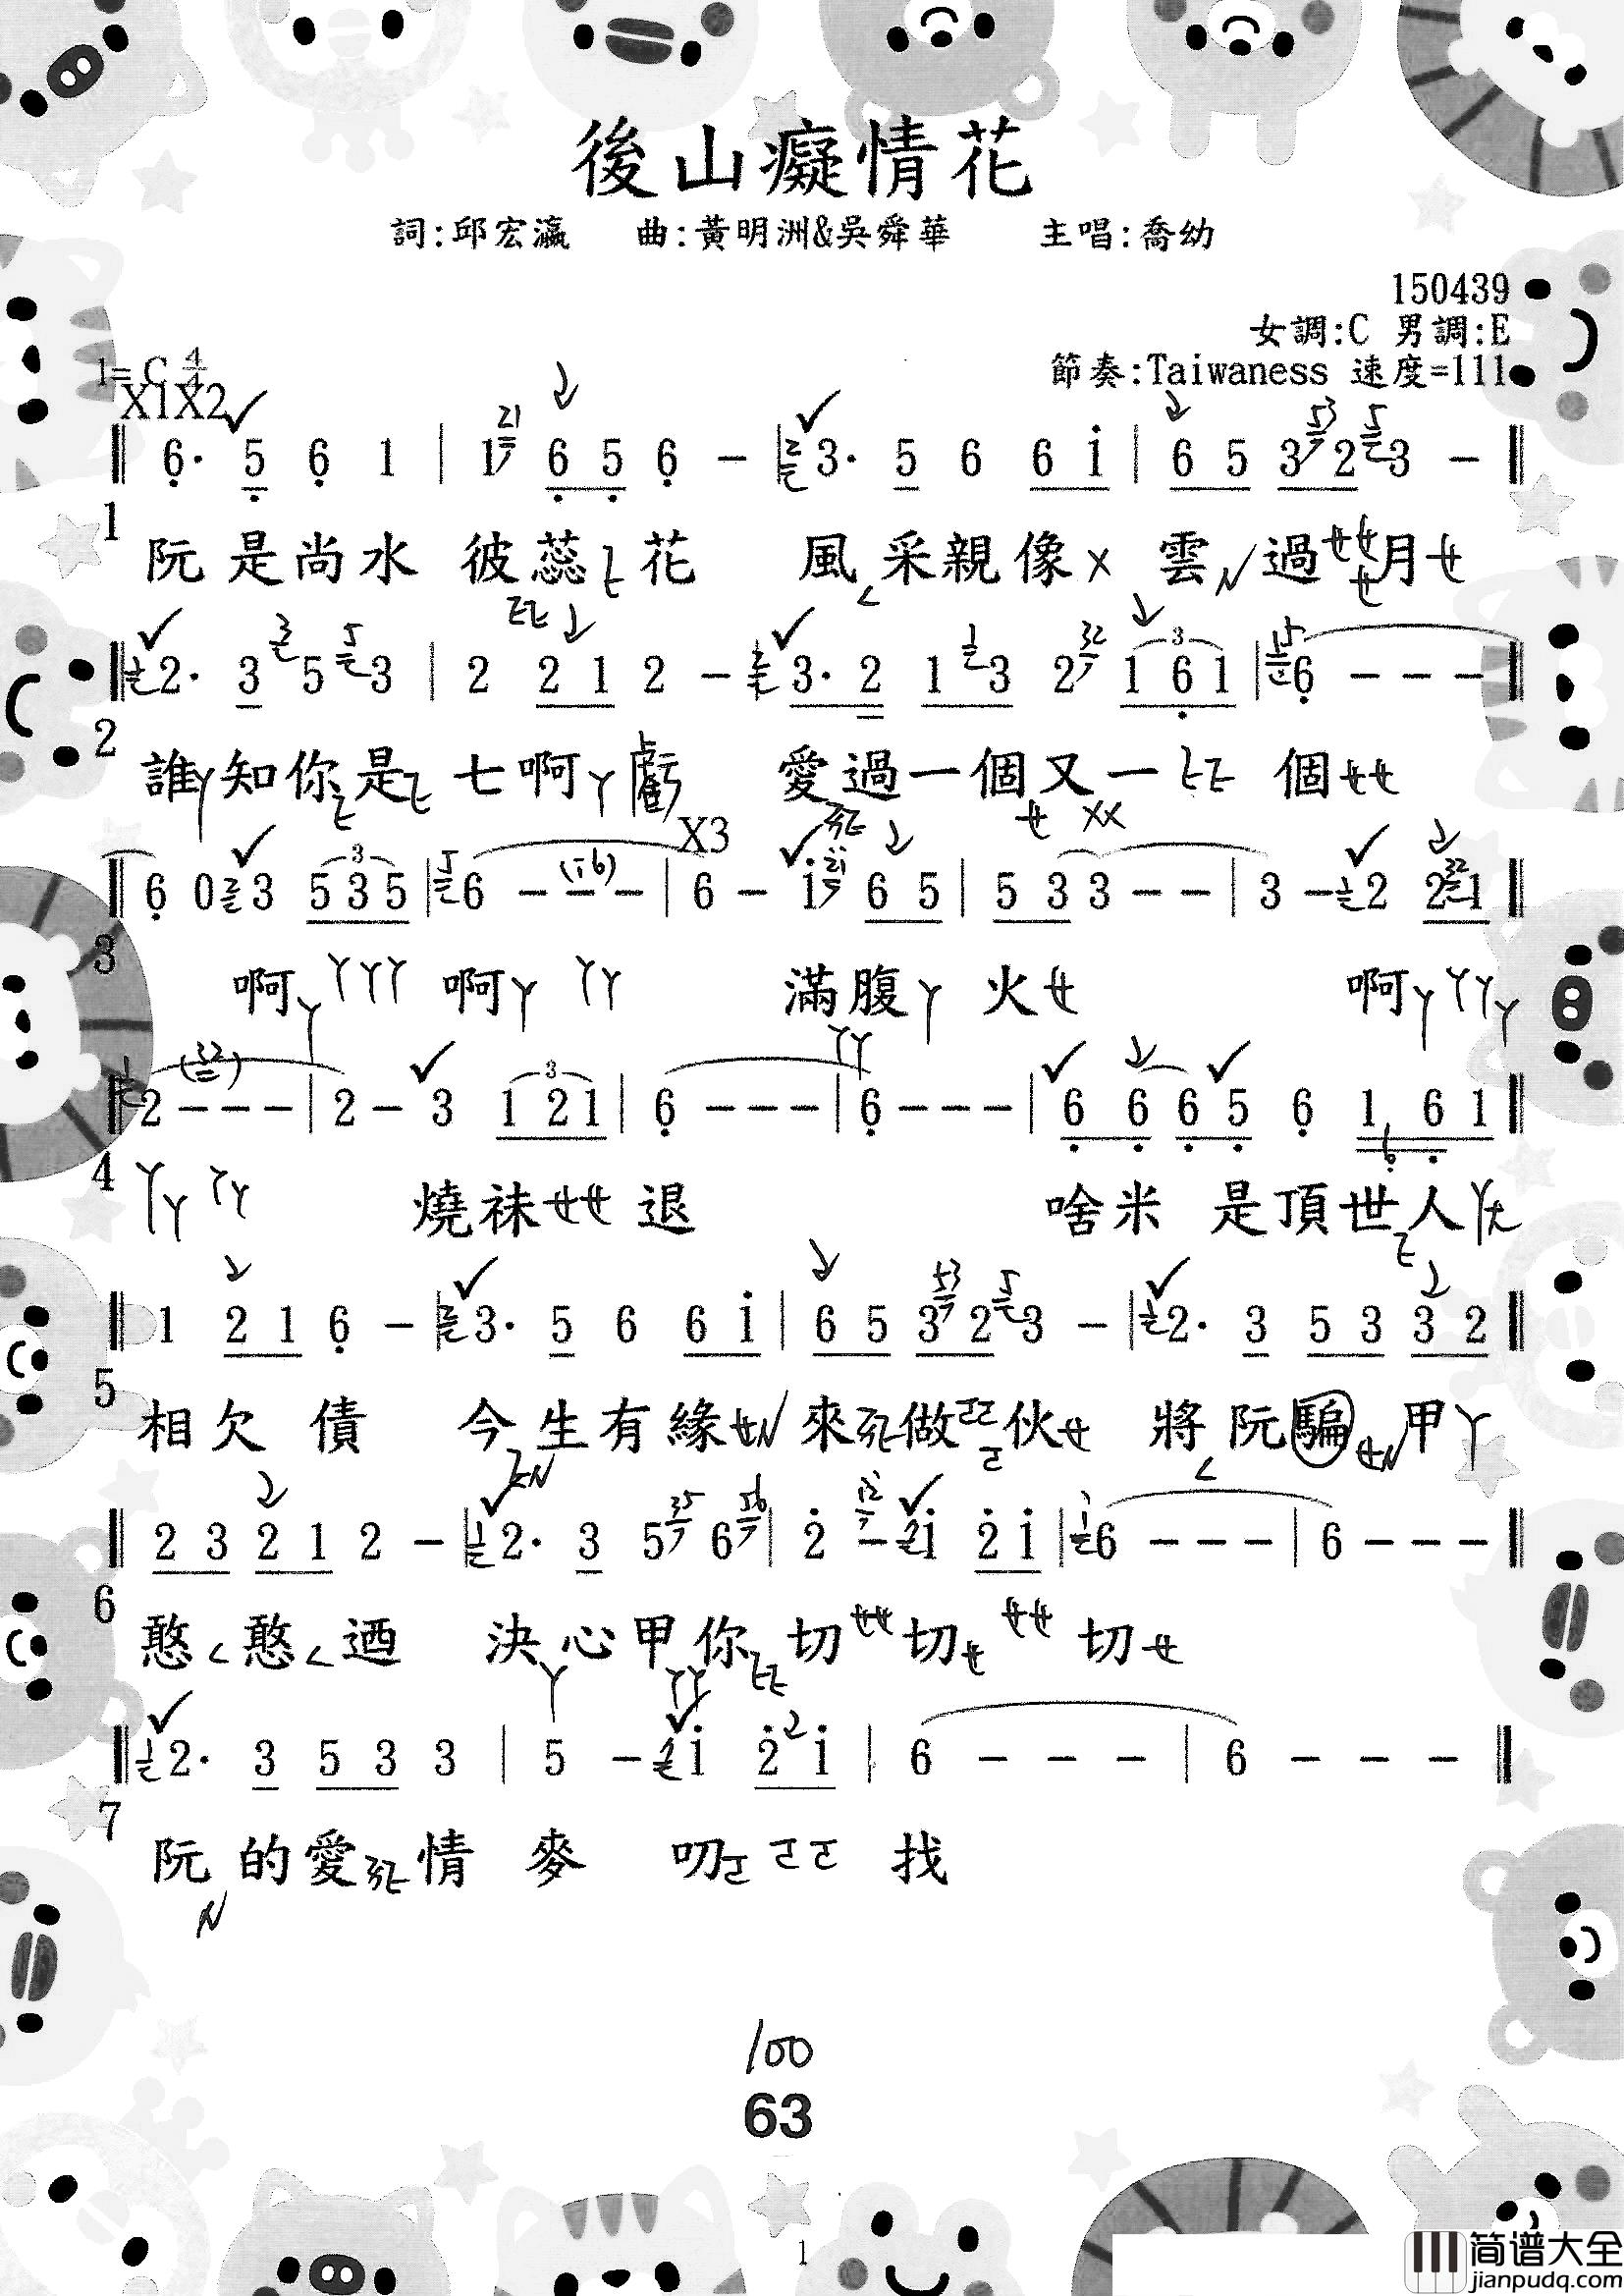 後山癡情花
詞:邱宏瀛 曲:黃明洲&吳舜華 主唱:喬幼
150439
女調:C 男調:E
1=C 4/4 節奏:Taiwaness 速度=111
X1X2
6. 5 6 1 | 1 6 5 6 - | 3. 5 6 6 i | 6 5 3 2 3 -
1
阮是尚水 彼蕊花 風采親像 雲過月
2. 3 5 3 | 2 2 1 2 - | 3. 2 1 3 2 1 6 1 | 6 - - -
2
誰知你是 七啊虧 愛過一個又一 個
X3
6 0 3 5 3 5 | 6 - - - | 6 - i 6 5 | 5 3 3 - - | 3 - 2 2 1
3
啊 啊 滿腹 火 啊
2 - - - | 2 - 3 1 2 1 | 6 - - - | 6 - - - | 6 6 6 5 6 1 6 1
4
燒袜 退 啥米 是頂世人
1 2 1 6 - | 3. 5 6 6 i | 6 5 3 2 3 - | 2. 3 5 3 3 2
5
相欠債 今生有緣 來做伙 將阮騙 甲
2 3 2 1 2 - | 2. 3 5 6 | 2 - i 2 i | 6 - - - | 6 - - -
6
憨憨迺 決心甲你 切 切 切
2. 3 5 3 3 | 5 - i 2 i | 6 - - - | 6 - - -
7
阮的愛情 麥 叨 找
100
63
1
简谱大全
jianpudq.com